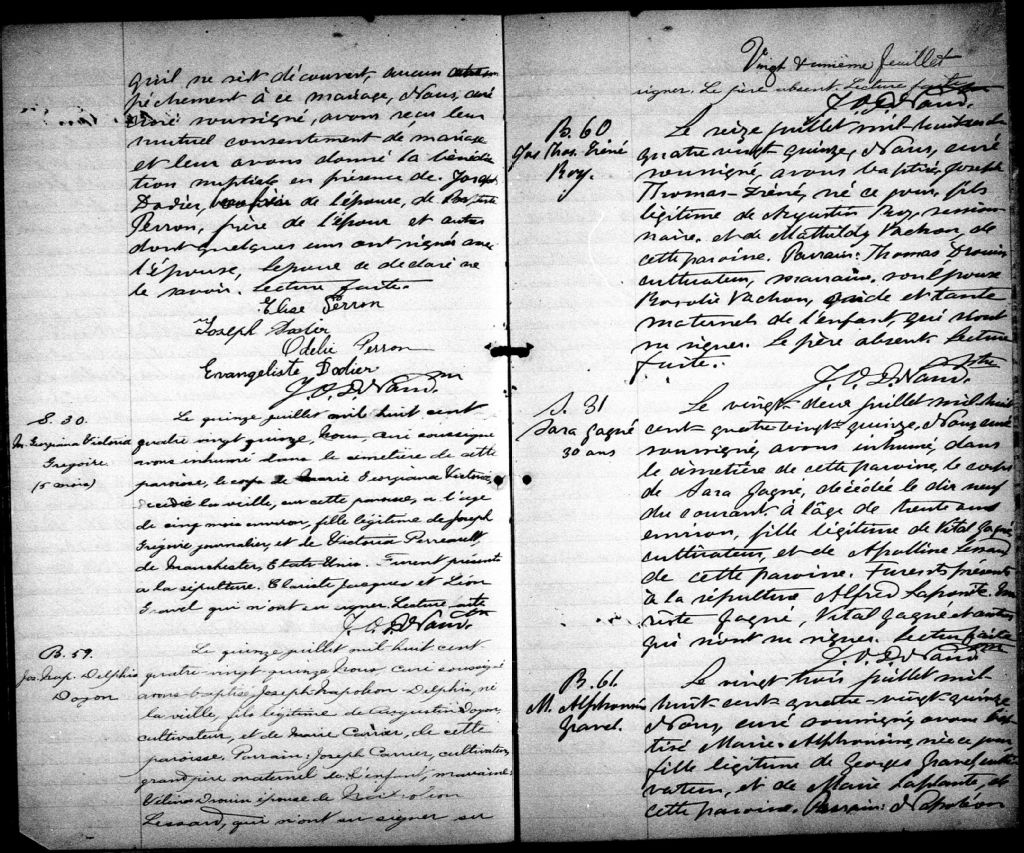 qu'il ne s'est découvert, aucun
pêchement à ce mariage, Nous, curé
soussigné, avons reçu leur
mutuel consentement de mariage
et leur avons donné la bénédic
tion nuptiale en présence de Joseph
Dodier, de l'épouse, de Baptiste
Perron, frère de l'époux et autres
dont quelques uns ont signés avec
l'épouse, l'époux a déclaré ne
le savoir. Lecture faite.
Elise Perron
Joseph Dodier
Odelie Perron
Evangeliste Dodier
J. O. D. Naud, ptre
S. 30.
M. Georgiana Victoria
Gregoire
(5 mois)
Le quinze juillet mil huit cent
quatre vingt quinze, Nous, curé soussigné
avons inhumé dans le cimetière de cette
paroisse, le corps de Marie Georgiana Victoria,
décédée la veille, en cette paroisse, a l'age
de cinq mois environ, fille légitime de Joseph
Grégoire journalier, et de Victoria Perreault
de Manchester, Etats-Unis. Furent présents
a la sépulture Jacques et Léon
Gravel qui n'ont su signer. Lecture faite
J. O. D. Naud, ptre
B. 59.
Jos. Nap. Delphis
Doyon
Le quinze juillet mil huit cent
quatre-vingt quinze Nous, curé soussigné
avons baptisé, Joseph-Napoléon-Delphis, né
la veille, fils légitime de Augustin Doyon,
cultivateur, et de Marie Carrier, de cette
paroisse. Parrain: Joseph Carrier, cultivateur,
grand père maternel de l'enfant, marraine:
Vilina Drouin épouse de Napoléon
Lessard, qui n'ont su signer su
Vingt & unième feuillet
signer. Le père absent. Lecture faite
J. O. D. Naud, ptre
B. 60
Jos Thos. Iréné
Roy.
Le seize juillet mil-huit cent
quatre vingt quinze, Nous, curé
soussigné, avons baptisé, Joseph
Thomas-Iréné, né ce jour, fils
légitime de Augustin Roy,
et de Mathilda Vachon, de
cette paroisse. Parrain: Thomas Drouin
cultivateur, marraine, son épouse
Rosalie Vachon, oncle et tante
maternels de l'enfant, qui n'ont
su signer. Le père absent. Lecture
faite.
J. O. D. Naud, ptre
S. 31
Sara Gagné
30 ans
Le vingt deux juillet mil huit
cent quatre vingt quinze, Nous, curé
soussigné, avons inhumé, dans
le cimetière de cette paroisse, le corps
de Sara Gagné, décédée le dix neuf
du courant à l'âge de trente ans
environ, fille légitime de Vital Gagné
cultivateur, et de Apolline Lessard
de cette paroisse. Furent présents
à la sépulture Alfred Laplante,
Gagné, Vital Gagné et autres
qui n'ont su signer. Lecture faite
J. O. D. Naud ptre
B. 61.
M. Alphonsine
Gravel.
Le vingt trois juillet mil
huit cent quatre-vingt quinze
Nous, curé soussigné, avons bap
tisé Marie-Alphonsine, née ce jour,
fille légitime de Georges Gravel culti
vateur, et de Marie Laplante, de
cette paroisse. Parrain: Napoléon